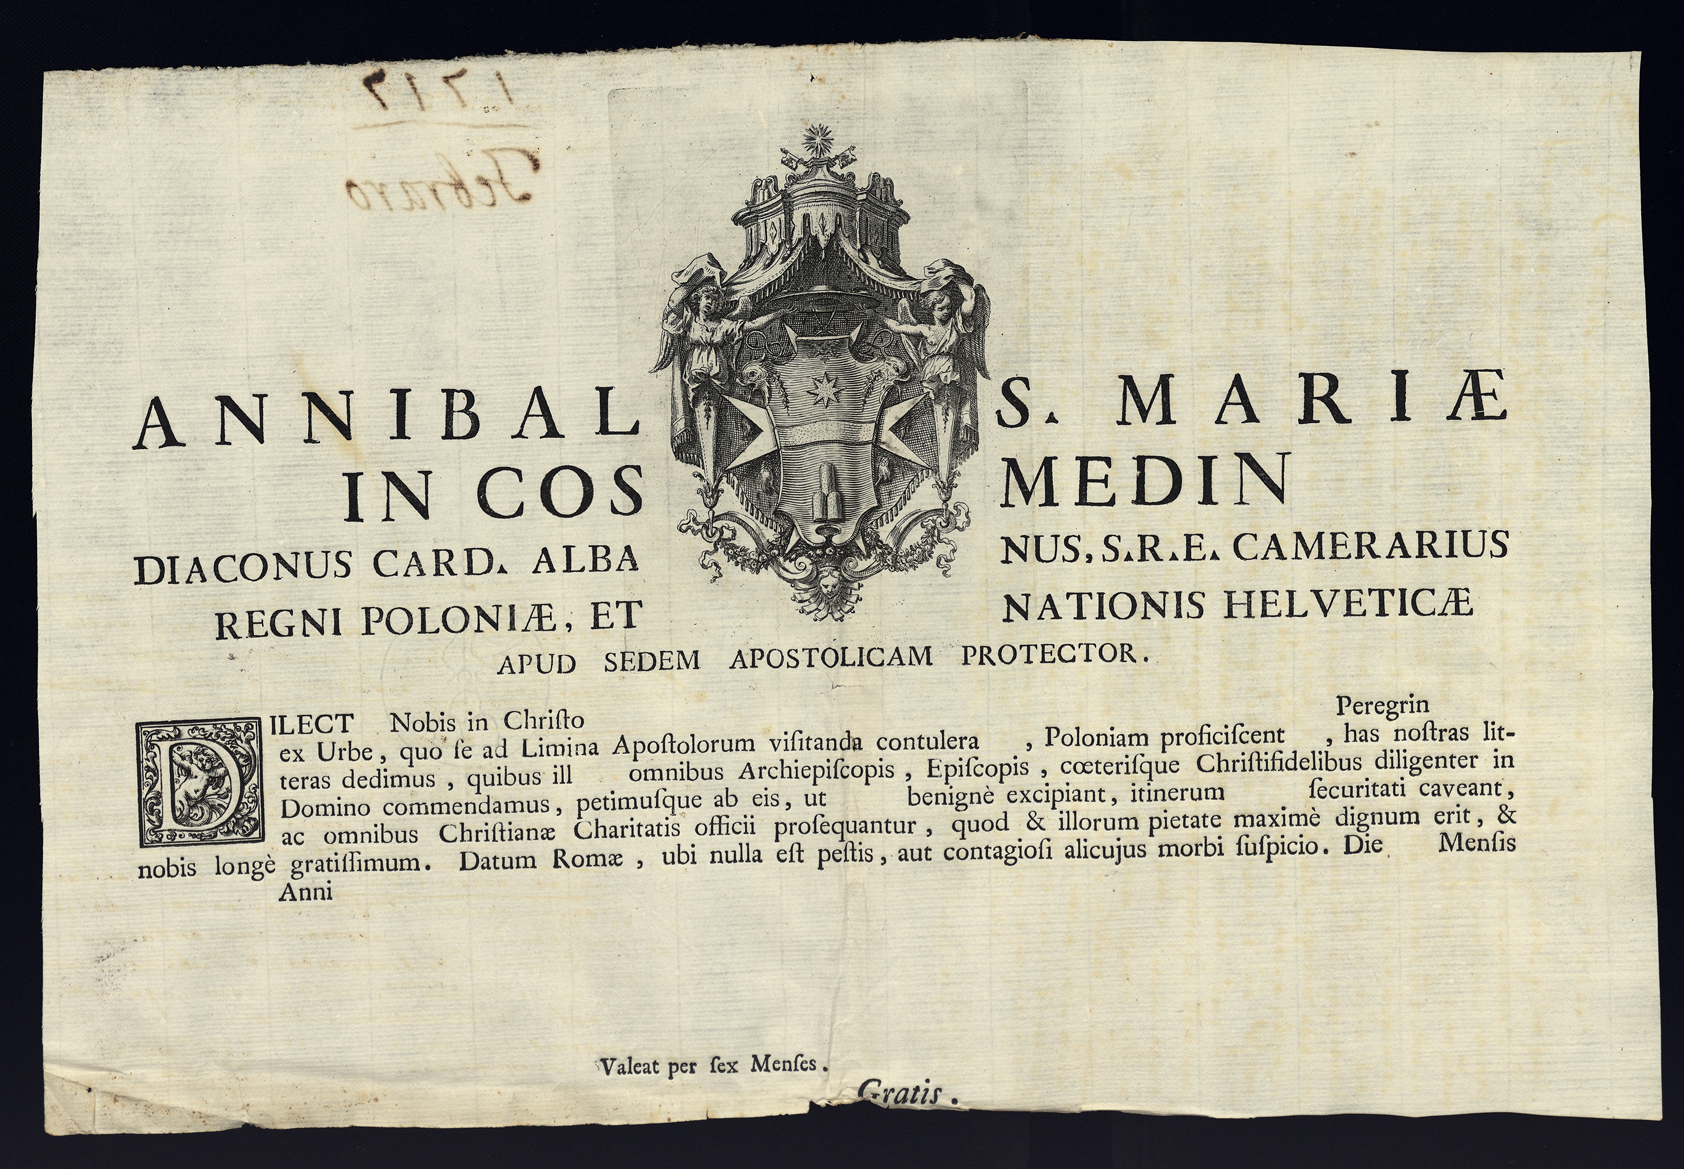 1717
Febraro
ANNIBAL S. MARIÆ
IN COS MEDIN
DIACONUS CARD. ALBA NUS, S.R.E. CAMERARIUS
REGNI POLONIÆ, ET NATIONIS HELVETICÆ
APUD SEDEM APOSTOLICAM PROTECTOR.
DILECT Nobis in Chriſto Peregrin
ex Urbe, quo ſe ad Limina Apoſtolorum viſitanda contulera , Poloniam proficiſcent , has noſtras lit-
teras dedimus, quibus ill omnibus Archiepiſcopis, Epiſcopis, cœteriſque Chriſtifidelibus diligenter in
Domino commendamus, petimuſque ab eis, ut benignè excipiant, itinerum ſecuritati caveant,
ac omnibus Chriſtianæ Charitatis officii proſequantur, quod & illorum pietate maximè dignum erit, &
nobis longè gratiſſimum. Datum Romæ, ubi nulla eſt peſtis, aut contagioſi alicujus morbi ſuſpicio. Die Menſis
Anni
Valeat per ſex Menſes.
Gratis.